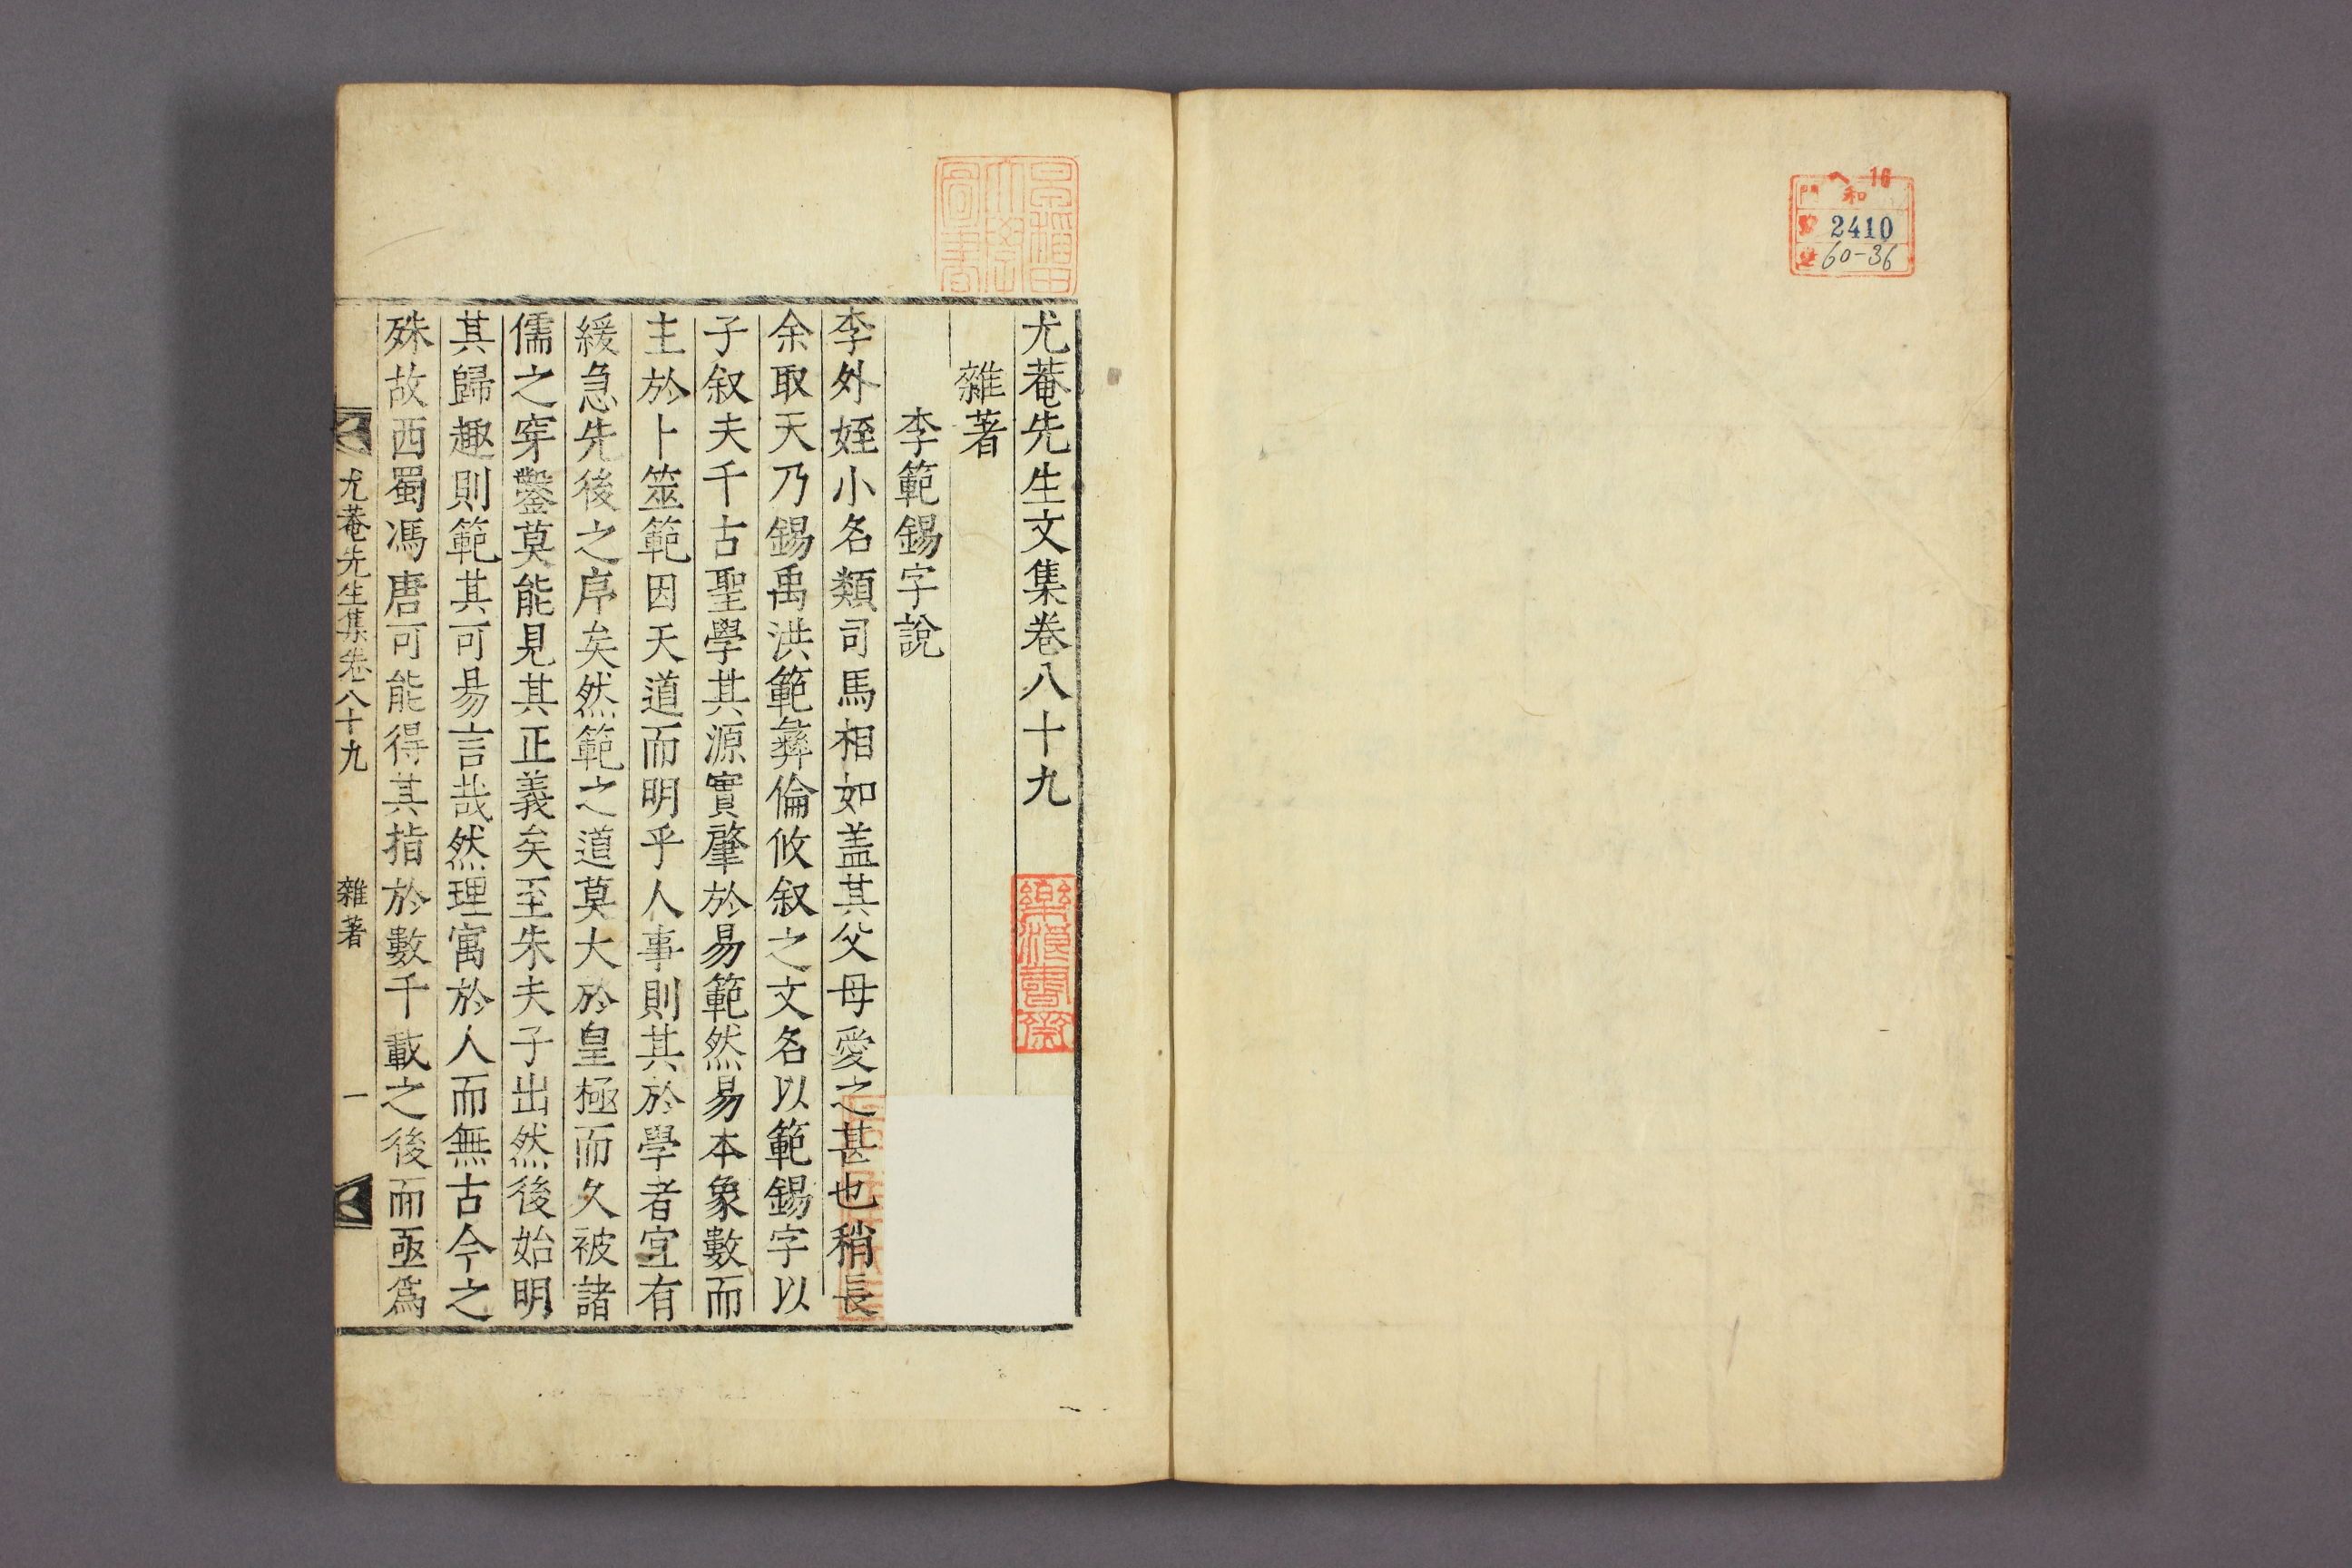 ヘ 16
門 和
號 2410
60-36
早稲田
大學
圖書
尤菴先生文集卷八十九
樂浪書齋
雜著
李範錫字說
李外姪小名類司馬相如盖其父母愛之甚也稍長
余取天乃錫禹洪範彛倫攸叙之文名以範錫字以
子叙夫千古聖學其源實肇於易範然易本象數而
主於卜筮範因天道而明乎人事則其於學者宜有
緩急先後之序矣然範之道莫大於皇極而久被諸
儒之穿鑿莫能見其正義矣至朱夫子出然後始明
其歸趣則範其可易言哉然理寓於人而無古今之
殊故西蜀馮唐可能得其指於數千載之後而亟爲
尤菴先生集卷八十九 雜著 一